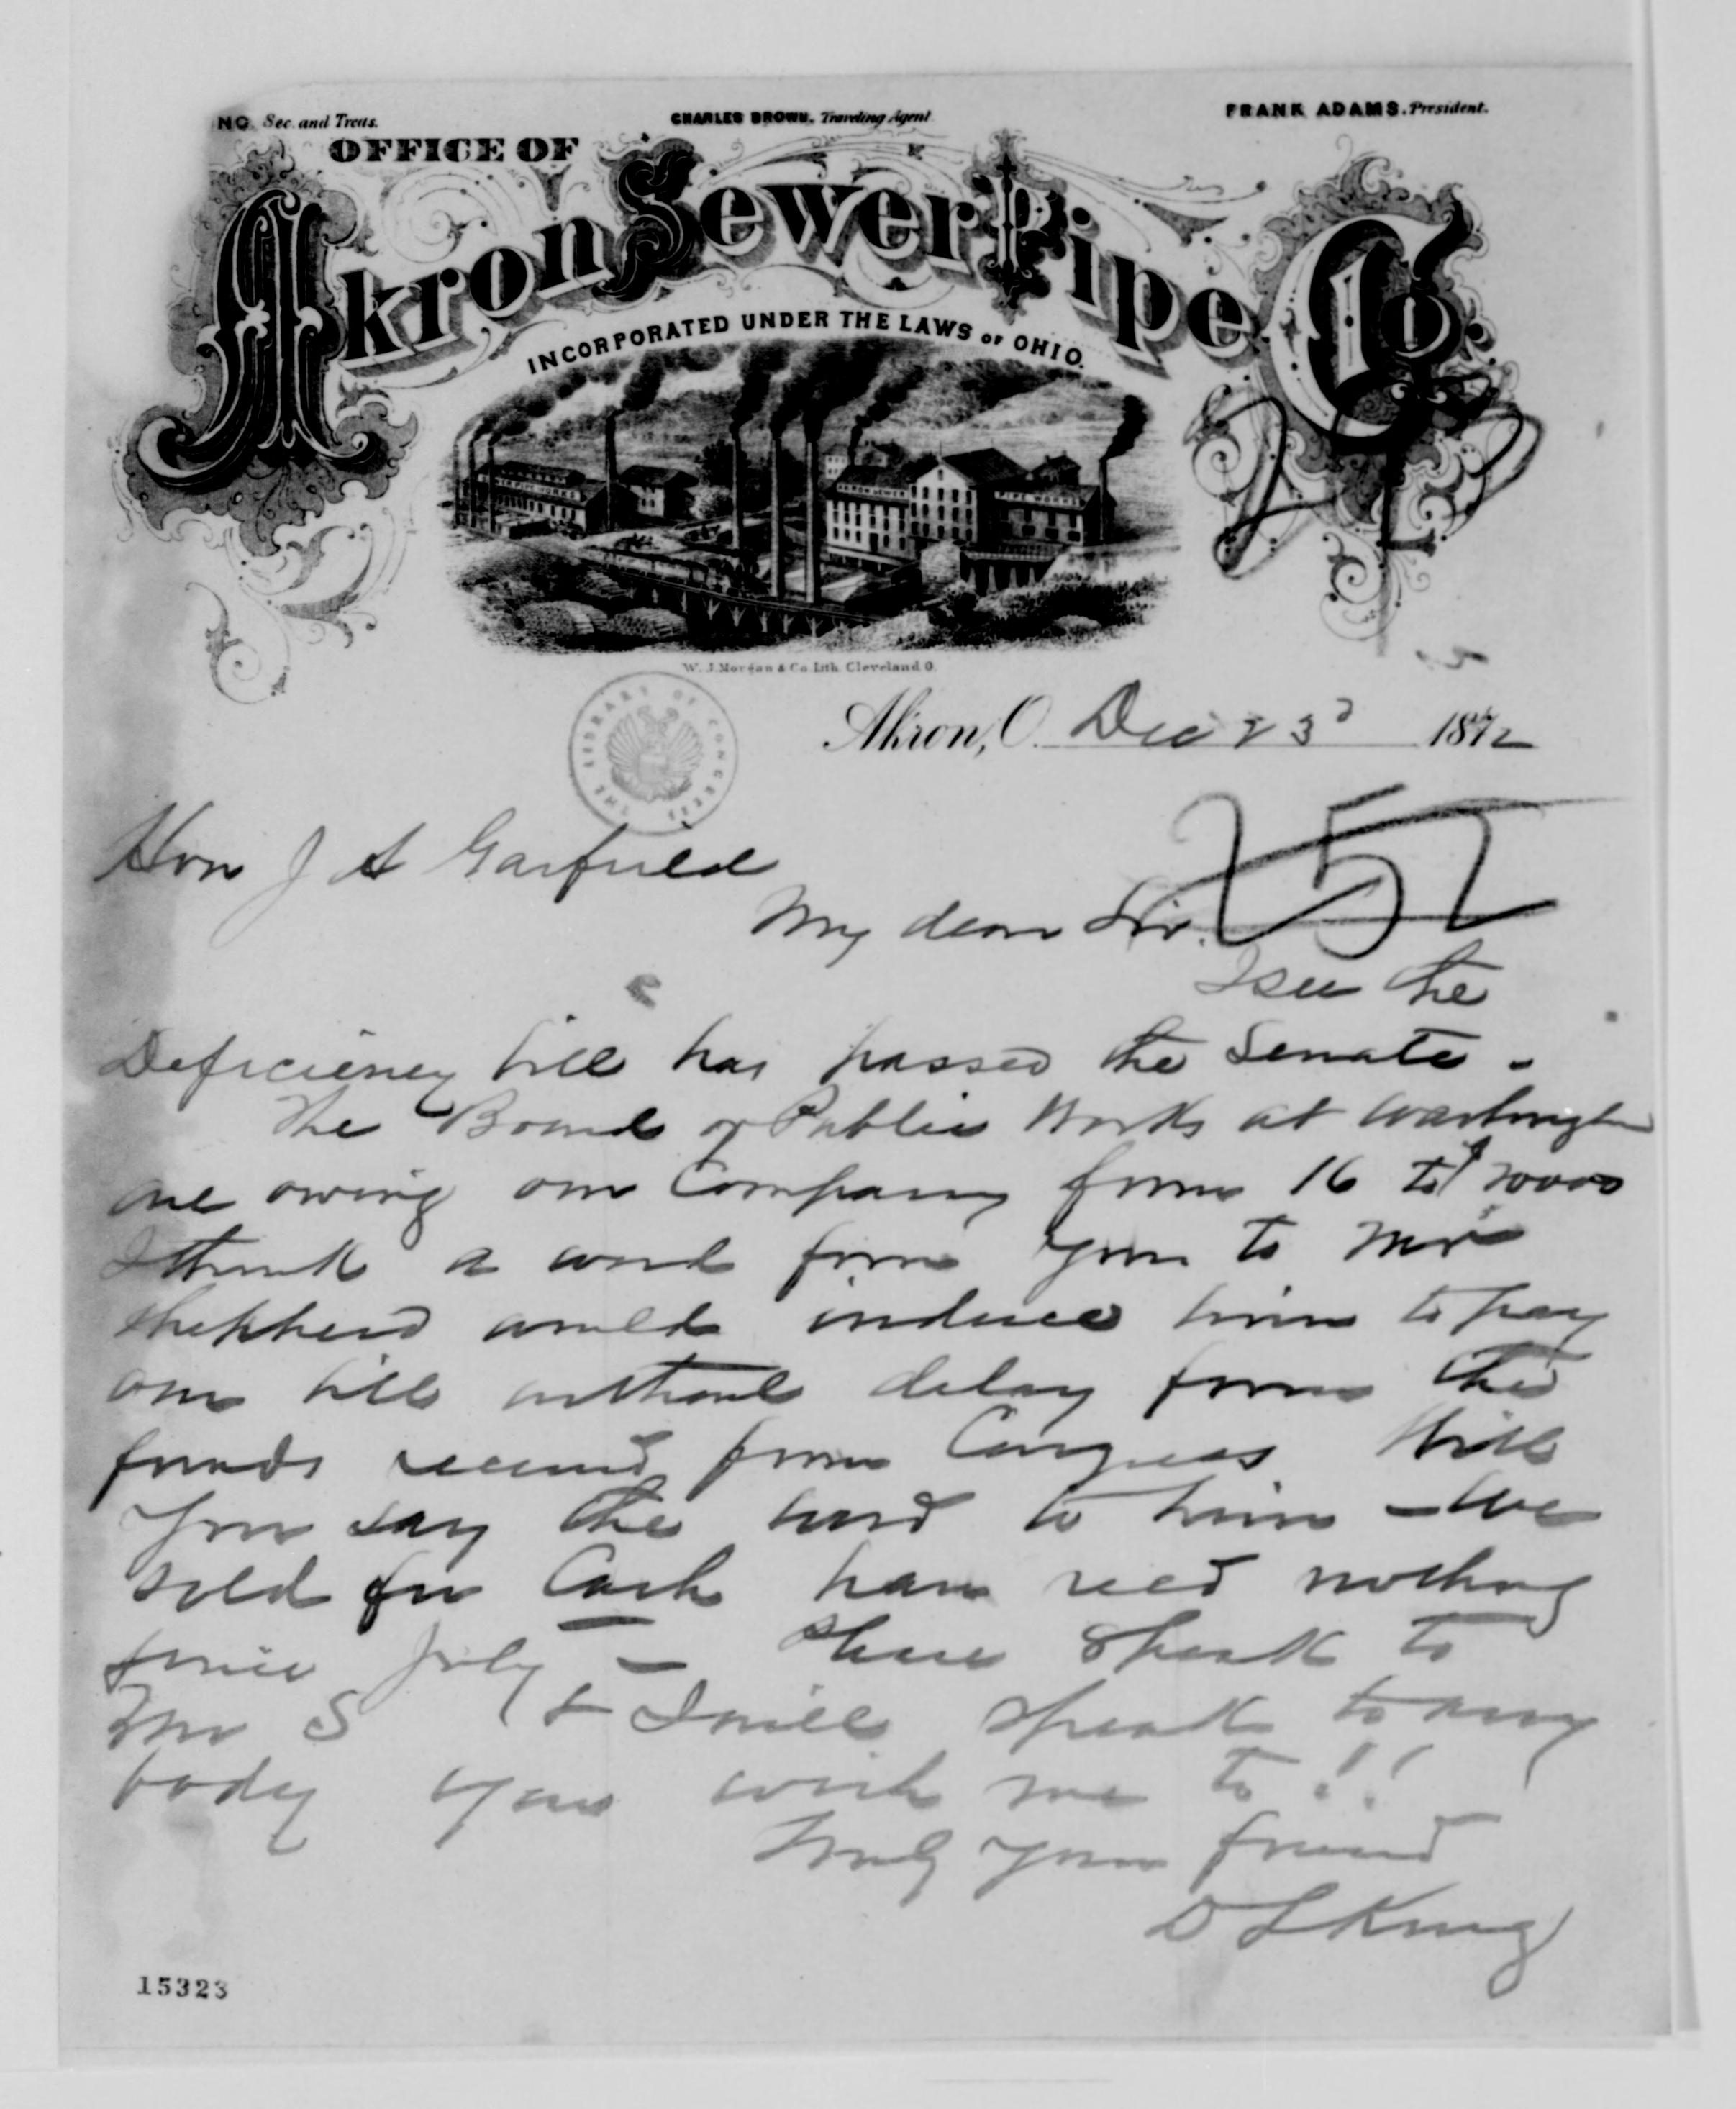 NG. Sec. and Treas.
CHARLES BROWN. Traveling Agent
FRANK ADAMS. President.
OFFICE OF
Akron Sewer Pipe Co.
INCORPORATED UNDER THE LAWS OF OHIO.
SEWER PIPE WORKS
AKRON SEWER PIPE WORKS
W. J. Morgan & Co. Lith. Cleveland O.
THE LIBRARY OF CONGRESS
Akron, O. Dec 23d 1872
252
Hon J A Garfield
My dear Sir.
I see the
Deficiency bill has passed the Senate -
The Board of Public Works at Washington
are owing our Company from 16 to $20000
I think a word from you to Mr
Shepherd would induce him to pay
our bill without delay from the
funds received from Congress Will
you say the word to him - We
sold for Cash have recd nothing
since July - Please speak to
Mr S & I will speak to any
body you wish me to !!
Truly your friend
D L King
15323